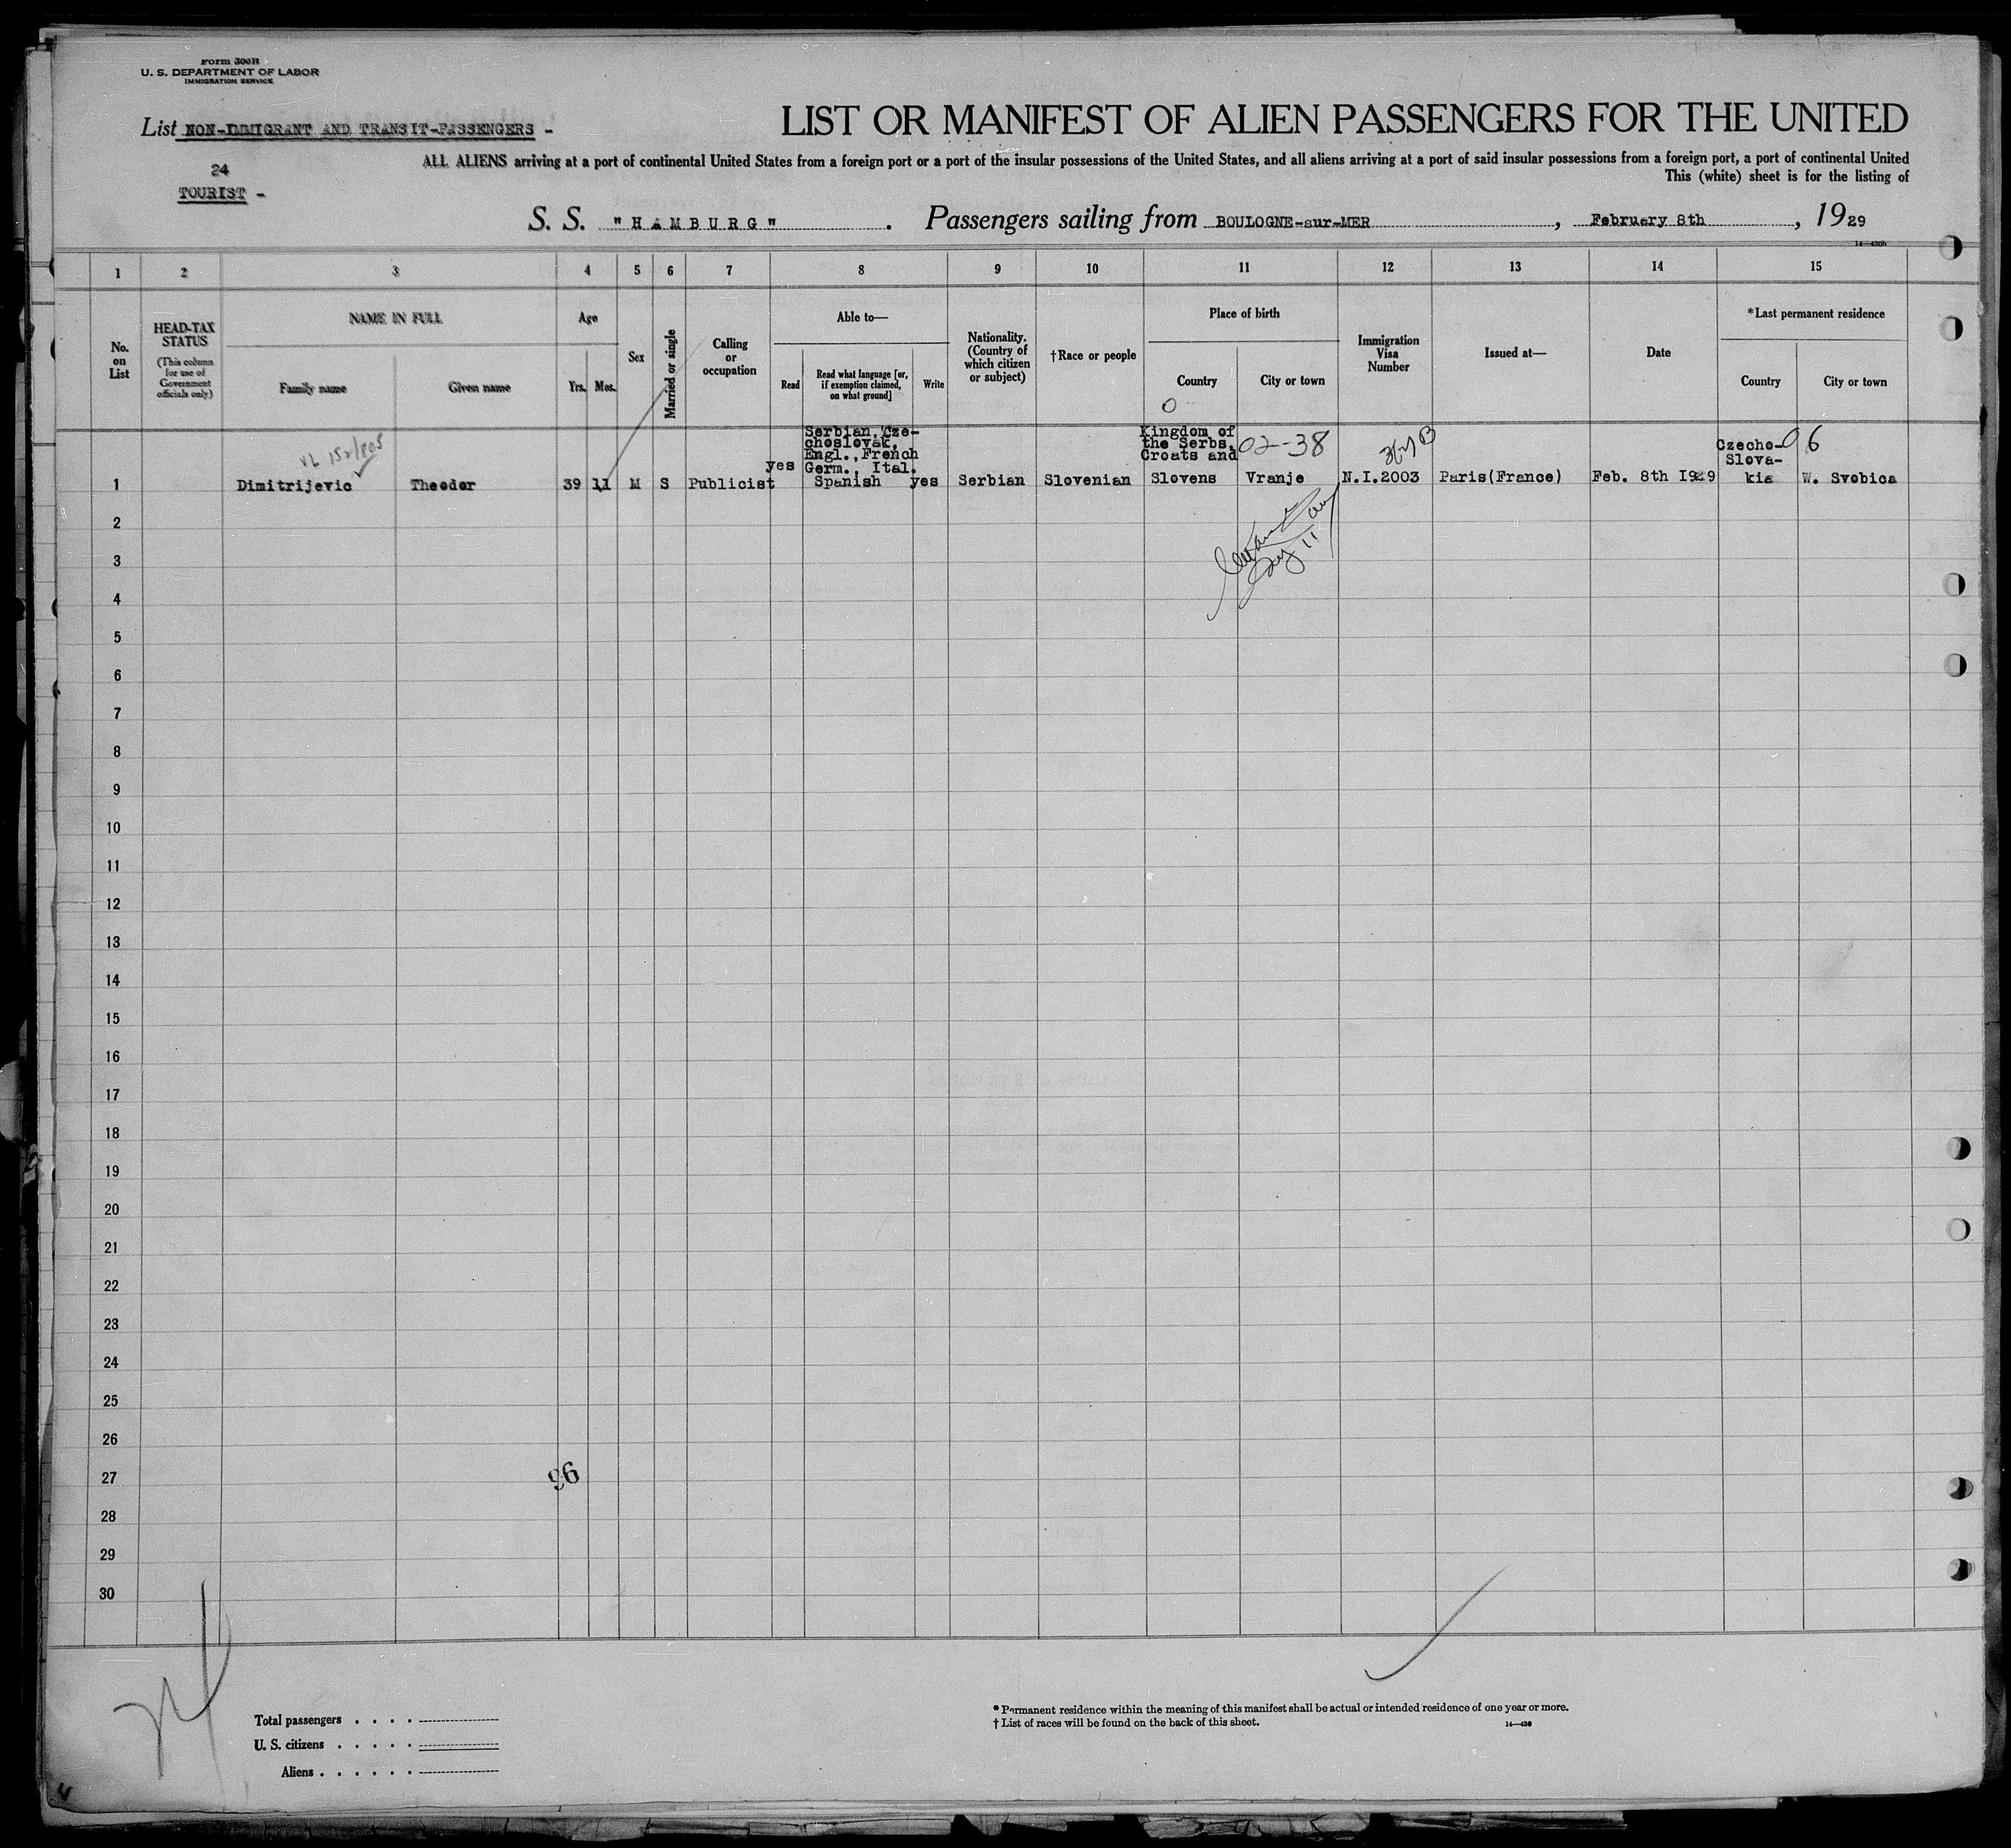 Form 300B
U. S. DEPARTMENT OF LABOR
IMMIGRATION SERVICE
List NON-IMMIGRANT AND TRANSIT-PASSENGERS -
24
TOURIST -
LIST OR MANIFEST OF ALIEN PASSENGERS FOR THE UNITED
ALL ALIENS arriving at a port of continental United States from a foreign port or a port of the insular possessions of the United States, and all aliens arriving at a port of said insular possessions from a foreign port, a port of continental United
This (white) sheet is for the listing of
S. S. "HAMBURG" . Passengers sailing from BOULOGNE-sur-MER , February 8th , 1929
14—430b
1 2 3 4 5 6 7 8 9 10 11 12 13 14 15
No. on List
HEAD-TAX STATUS
(This column for use of Government officials only)
NAME IN FULL
Family name
Given name
Age
Yrs. Mos.
Sex
Married or single
Calling or occupation
Able to—
Read
Read what language [or, if exemption claimed, on what ground]
Write
Nationality. (Country of which citizen or subject)
†Race or people
Place of birth
Country
City or town
Immigration Visa Number
Issued at—
Date
*Last permanent residence
Country
City or town
0
02-38
06
1 Dimitrijevic Theodor 39 11 M S Publicist yes
Serbian, Cze-
choslovak,
Engl., French
Germ., Ital.
Spanish
yes Serbian Slovenian
Kingdom of
the Serbs,
Croats and
Slovens
Vranje N.I.2003 Paris(France) Feb. 8th 1929
Czecho-
Slova-
kia
W. Svobica
2
3
4
5
6
7
8
9
10
11
12
13
14
15
16
17
18
19
20
21
22
23
24
25
26
27
28
29
30
96
Total passengers . . . .
U. S. citizens . . . . .
Aliens . . . . . .
* Permanent residence within the meaning of this manifest shall be actual or intended residence of one year or more.
† List of races will be found on the back of this sheet.
14—430